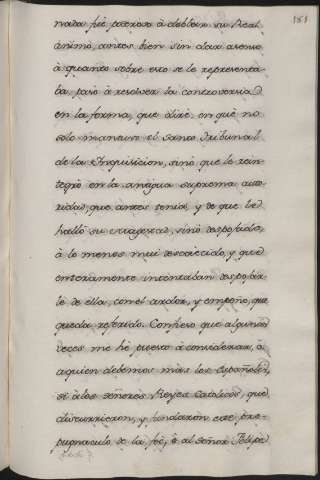 181
nada fué poderoso á doblar su Real
ánimo, antes bien sin dar asenso
á quanto sobre esto se le representa-
ba, pasó á resolver la controversia
en la forma, que diré; en que no
solo mantuvo el Santo Tribunal
de la Inquisicion, sinó que le rein-
tegró en la antigua suprema auto-
ridad, que antes tenia, y de que le
halló su Magestad, sinó despojado,
á lo menos mui descaecido, y que
enteramente intentaban despojar-
le de ella, con el ardor, y empeño, que
queda referido. Confieso que algunas
veces me hé puesto á considerar, á
quien debemos más los Españoles,
si á los señores Reyes Catolicos, que
discurrieron, y fundaron este pro-
pugnaculo de la fé, ó al señor Felipe